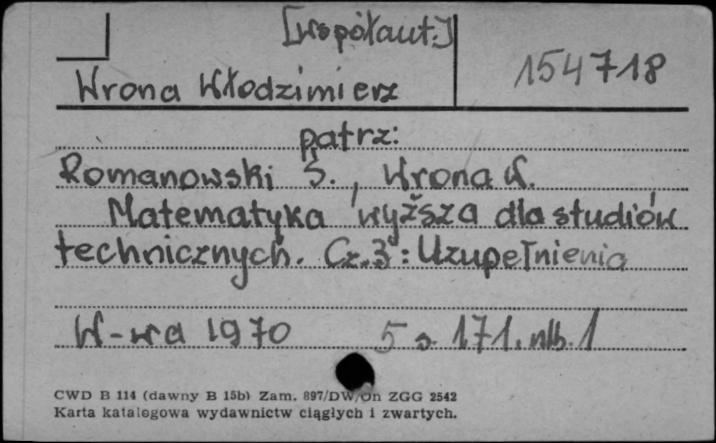 [współaut.]
154718
Wrona Włodzimierz
patrz:
Romanowski S., Wrona W.
Matematyka wyższa dla studiów
technicznych. Cz.3: Uzupełnienia
W-wa 1970 5 s. 171. nlb. 1
CWD B 114 (dawny B 15b) Zam. 897/DW/On ZGG 2542
Karta katalogowa wydawnictw ciągłych i zwartych.